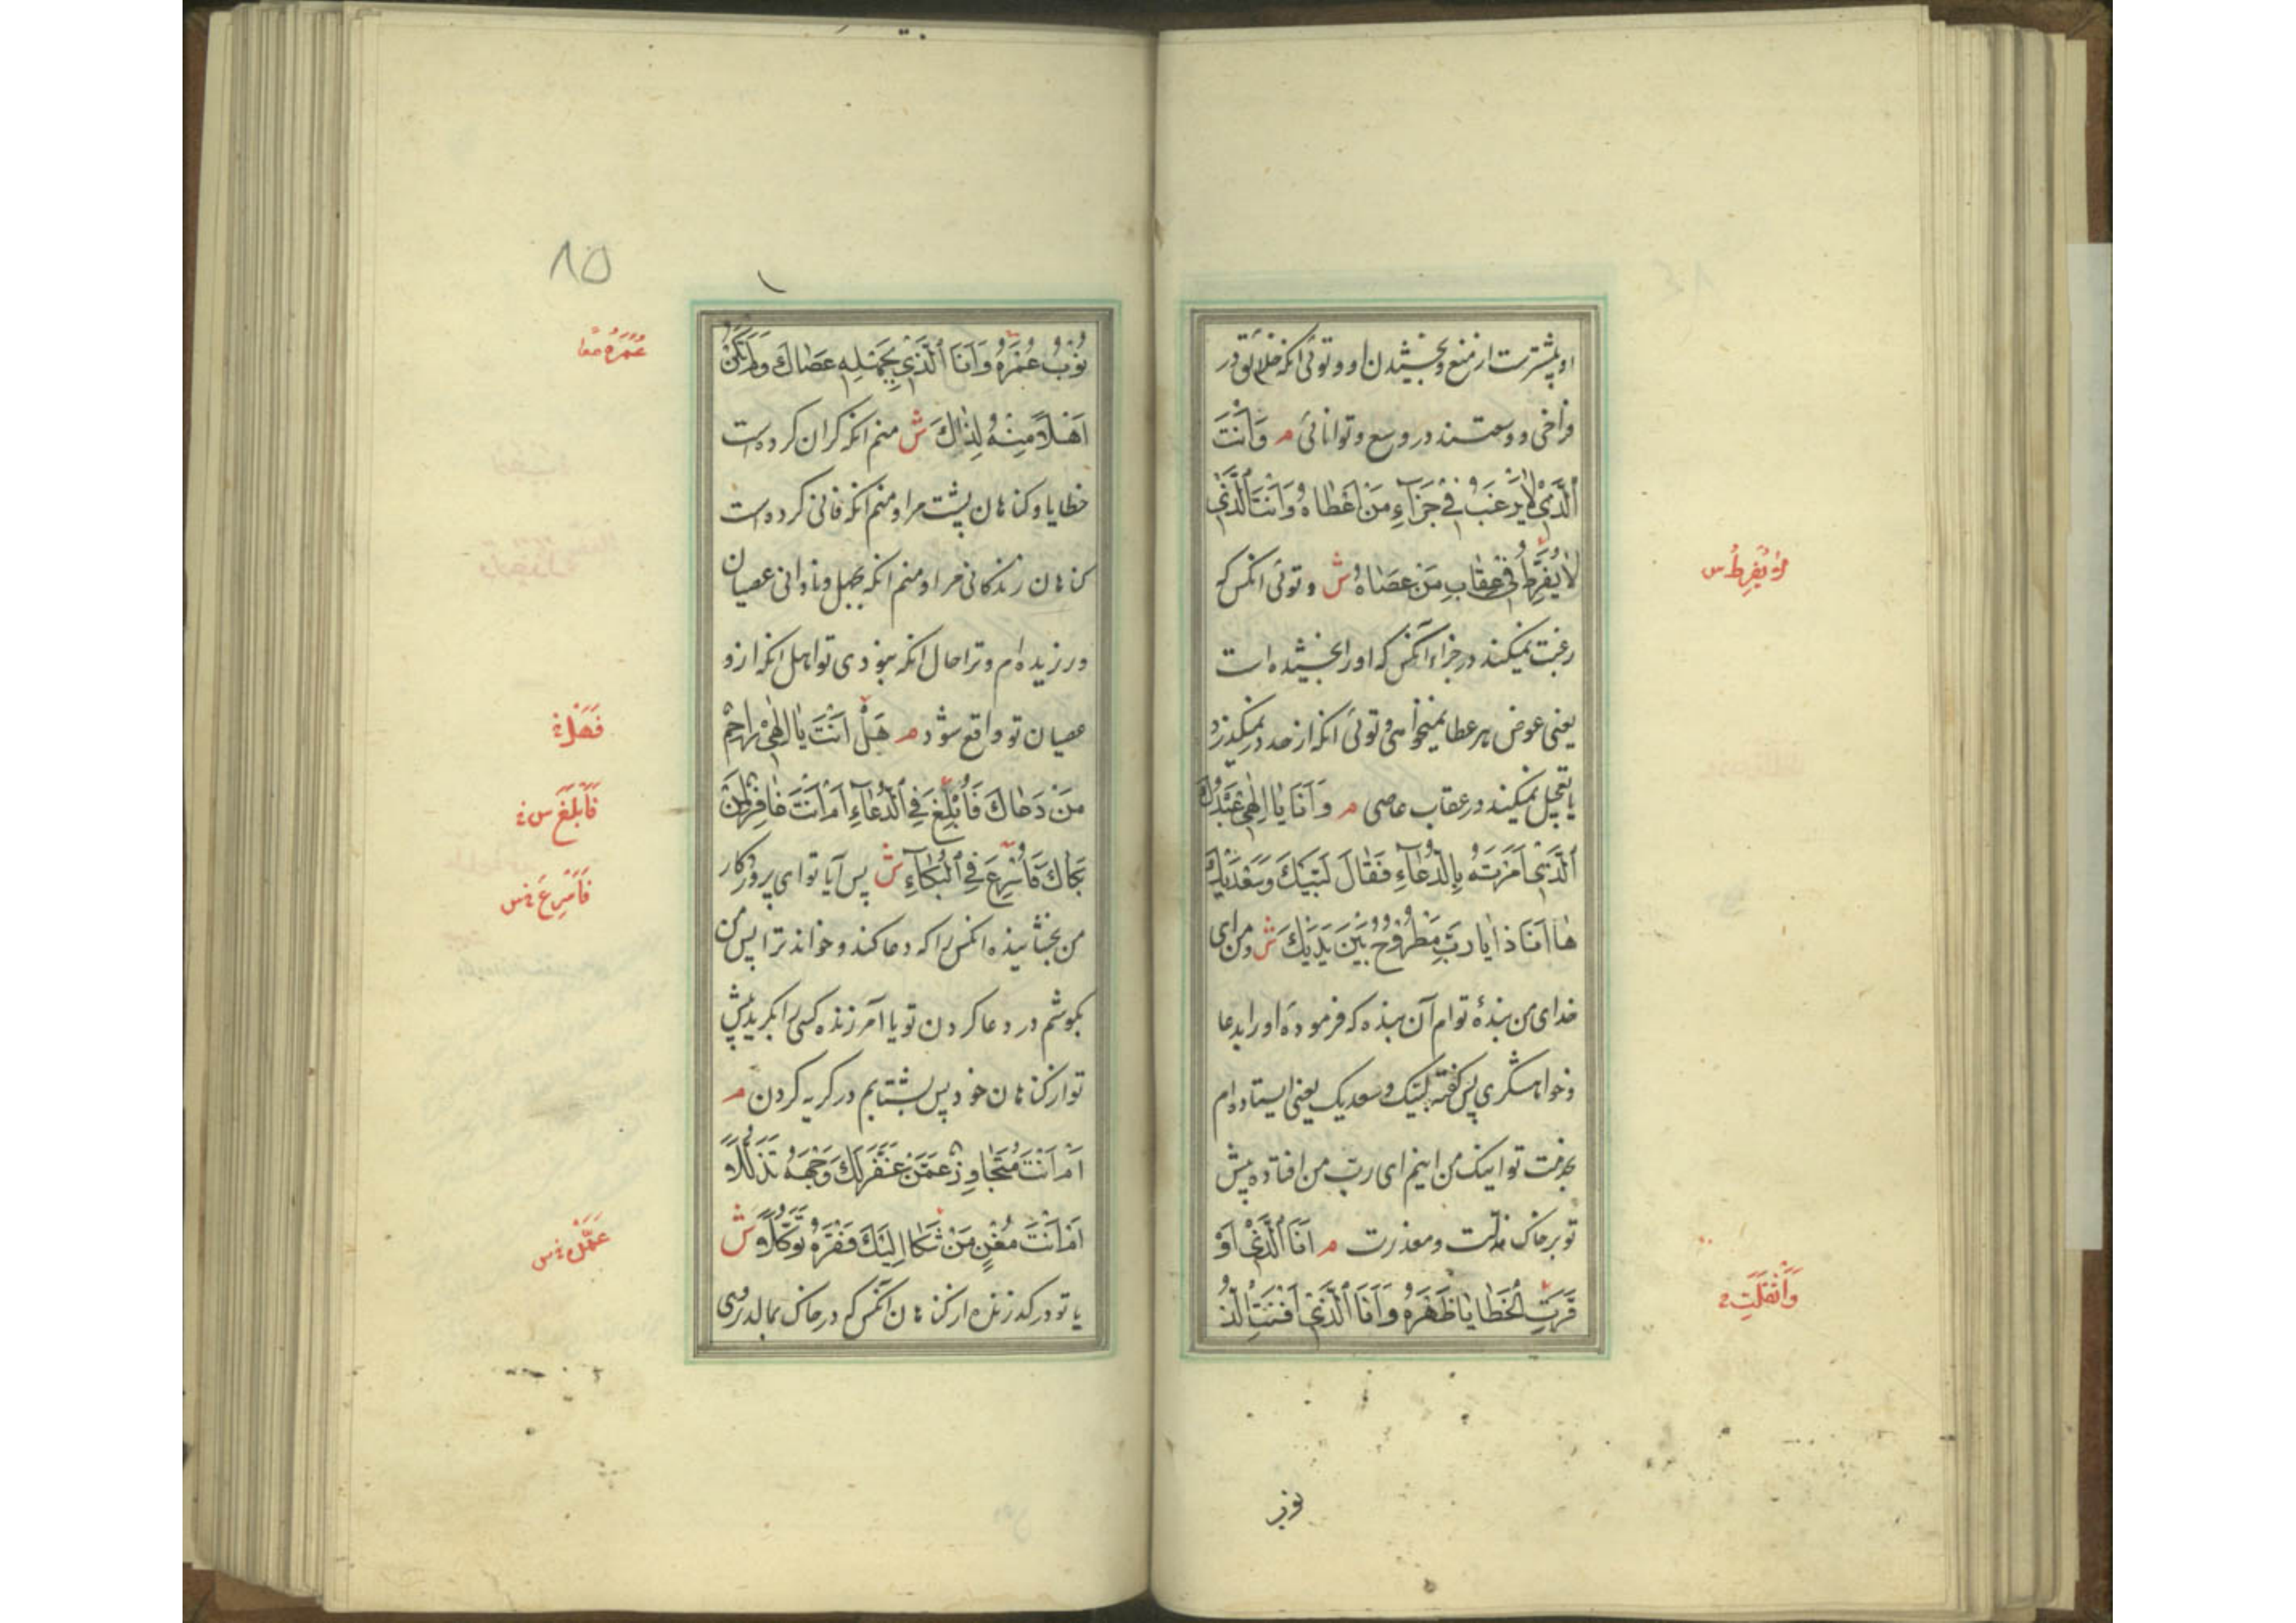 او بیشترست از منع و بخشیدن او و توئی انکه خلائق در
فراخی و وسعتند در وسع و توانائی م وَاَنْتَ
الَّذی لا یَرْغَبُ فی جَزآءِ مَنْ اَعْطاهُ وَاَنْتَ الَّذی
لا یُفَرِّطُ فی عِقابِ مَنْ عَصاهُ ش و توئی انکس که
رغبت نمیکند در جزاء آنکس که او را بخشیده است
یعنی عوض بر عطا نمیخواهی و توئی انکه از حد در نمیکذرد
یا تعجیل نمیکند در عقاب عاصی م وَاَنَا یا اِلٰهی عَبْدُكَ
الَّذی اَمَرْتَهُ بِالدُّعآءِ فَقالَ لَبَّیْكَ وَسَعْدَیْكَ
ها اَنَا ذا یا رَبِّ مَطْرُوحٌ بَیْنَ یَدَیْكَ ش و من ای
خدای من بندۀ توام آن بنده که فرمودۀ او را بدعا
و خواهشکری پس کفته لبیک و سعدیک یعنی ایستاده ام
بخدمت تو اینک من اینم ای رب من افتاده پیش
تو بر خاک مذلت و معذرت م اَنَا الَّذی اَوْ
قَرَتِ الْخَطایا ظَهْرَهُ وَاَنَا الَّذی اَفْنَتِ الذُّ
لا یُفْرِطُ س
وَاَثْقَلَتِ
نوب
۸۵
نُوبُ عُمْرَهُ وَاَنَا الَّذی بِجَهْلِهِ عَصاكَ وَلَمْ تَكُنْ
اَهْلاً مِنْهُ لِذاكَ ش منم انکه کران کرده است
خطایا و کناهان پشت مرا و منم انکه فانی کرده است
کناهان زندکانی مرا و منم انکه بجهل و نادانی عصیان
ورزیده ام و ترا حال انکه نبودی تو اهل انکه از و
عصیان تو واقع شود م هَلْ اَنْتَ یا اِلٰهی راحِمٌ
مَنْ دَعاكَ فَاُبْلِغَ فِی الدُّعآءِ اَمْ اَنْتَ غافِرٌ لِمَنْ
بَکاكَ فَاُسْرِعَ فِی الْبُکآءِ ش پس آیا تو ای پروردکار
من بخشاینده انکس را که دعا کند و خواند ترا پس من
بکوشم در دعا کردن تو یا آمرزنده کسی را بکرید پیش
تو از کناهان خود پس بشتابم در کریه کردن م
اَمْ اَنْتَ مُتَجاوِزٌ عَمَّنْ عَفَّرَ لَكَ وَجْهَهُ تَذَلُّلاً
اَمْ اَنْتَ مُغْنٍ مَنْ شَکا اِلَیْكَ فَقْرَهُ تَوَکُّلاً ش
یا تو درکذرنده از کناهان انکس که در خاک بمالد روی
عُمُرَهُ معا
فَهَلْ
فَاُبَلِّغَ س
فَاُسْرِعَ س